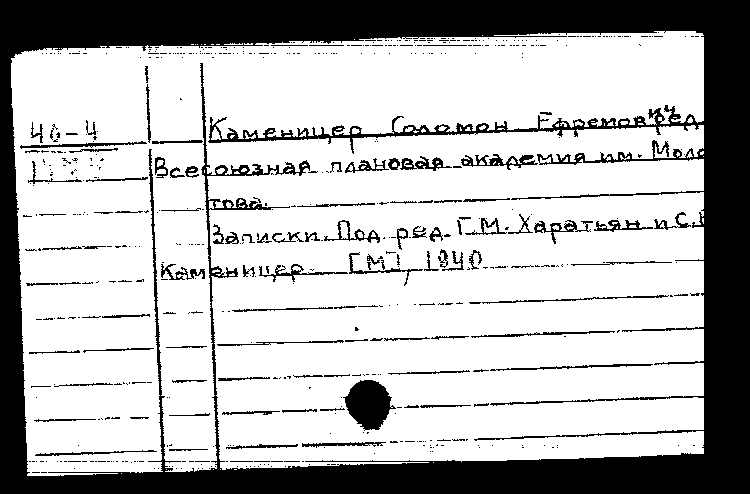 40-4
Каменицер Соломон Ефремович ред.
Всесоюзная плановая академия им. Моло
това.
Записки. Под ред. Г.М. Харатьян и С.Е
Каменицер. [М], 1940